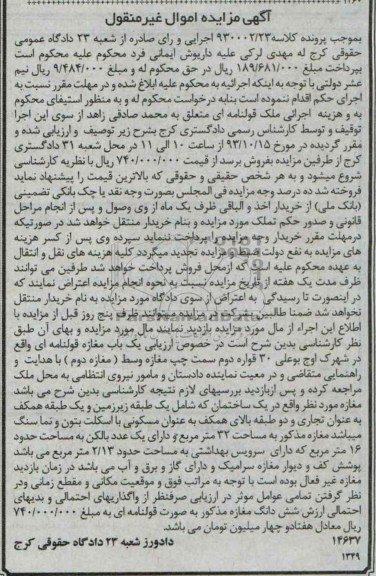 آگهی مزایده اموال غیرمنقول
بموجب پرونده کلاسه ۹۳۰۰۰۲/۲۳ اجرایی و رای صادره از شعبه ۲۳ دادگاه عمومی
حقوقی کرج له مهدی لرکی علیه داریوش ایمانی فرد محکوم علیه محکوم است
بپرداخت مبلغ ۱۸۹/۶۸۱/۰۰۰ ریال در حق محکوم له و مبلغ ۹/۴۸۴/۰۰۰ ریال نیم
عشر دولتی با توجه به اینکه اجرائیه به محکوم علیه ابلاغ شده و در مهلت مقرر نسبت به
اجرای حکم اقدام ننموده است بنابه درخواست محکوم له و به منظور استیفای محکوم
به و هزینه اجرائی ملک قولنامه ای متعلق به محمد صادقی زاهد از سوی این اجرا
توقیف و توسط کارشناس رسمی دادگستری کرج بشرح زیر توصیف و ارزیابی شده و
مقرر گردیده در مورخ ۹۳/۱۰/۱۵ از ساعت ۱۰ الی ۱۱ در محل شعبه ۳۱ دادگستری
کرج از طرفین مزایده بفروش برسد از قیمت ۷۴۰/۰۰۰/۰۰۰ ریال با نظریه کارشناسی
شروع میشود و به هر شخص حقیقی و حقوقی که بالاترین قیمت را پیشنهاد نماید
فروخته شد ده درصد وجه مزایده فی المجلس بصورت وجه نقد یا چک بانکی تضمینی
(بانک ملی) از خریدار اخذ و الباقی ظرف یک ماه از وی وصول و پس از انجام مراحل
قانونی و صدور حکم تملک مورد مزایده و بنام خریدار منتقل خواهد شد در صورتیکه
درمهلت مقرر خریدار وجه مزایده را پرداخت ننماید سپرده وی پس از کسر هزینه
های مزایده به نفع دولت ضبط و مزایده تجدید میگردد کلیه هزینه های نقل و انتقال
به عهده محکوم علیه است که ازمحل فروش پرداخت خواهد شد طرفین می توانند
ظرف مدت یک هفته از تاریخ مزایده نسبت به نحوه انجام مزایده اعتراض نمایند که
در اینصورت تا رسیدگی به اعتراض از سوی دادگاه مورد مزایده به نام خریدار منتقل
نخواهد شد ضمنا طالبین شرکت در مزایده میتوانند ظرف پنج روز قبل از مزایده با
اطلاع این اجراء از مال مورد مزایده بازدید نمایند مال مورد مزایده و بهای آن طبق
نظر کارشناسی بدین شرح است در خصوص ارزیابی یک باب مغازه قولنامه ای واقع
در شهرک اوج بوعلی ۳۰ قواره دوم سمت چپ مغازه وسط ( مغازه دوم ) با هدایت و
راهنمایی متقاضی و در معیت نماینده دادستان و مامور نیروی انتظامی به محل ملک
مراجعه کرده و پس ازبازدید بررسیهای لازم نتیجه کارشناسی بدین شرح می باشد
مغازه مورد نظر واقع در یک ساختمان که شامل یک طبقه زیرزمین و یک طبقه همکف
به عنوان تجاری و دو طبقه بالای همکف به عنوان مسکونی با اسکلت بتون و نما سنگ
میباشد مغازه مذکور به مساحت ۳۲ متر مربع و دارای یک عدد بالکن به مساحت حدود
۱۶ متر مربع که دارای سرویس بهداشتی به مساحت حدود ۲/۱۳ متر مربع می باشد
پوشش کف و دیوار مغازه سرامیک و دارای گاز و برق و آب می باشد در زمان بازدید
مغازه غیر فعال بوده است با توجه به مراتب فوق و موقعیت مکانی و مقطع زمانی ودر
نظر گرفتن تمامی عوامل موثر در ارزیابی صرفنظر از واگذاریهای احتمالی و بدیهای
احتمالی ارزش شش دانگ مغازه مذکور به صورت قولنامه ای به مبلغ ۷۴۰/۰۰۰/۰۰۰
ریال معادل هفتادو چهار میلیون تومان می باشد.
۱۴۶۳۷ دادورز شعبه ۲۳ دادگاه حقوقی کرج
۱۳۴۹